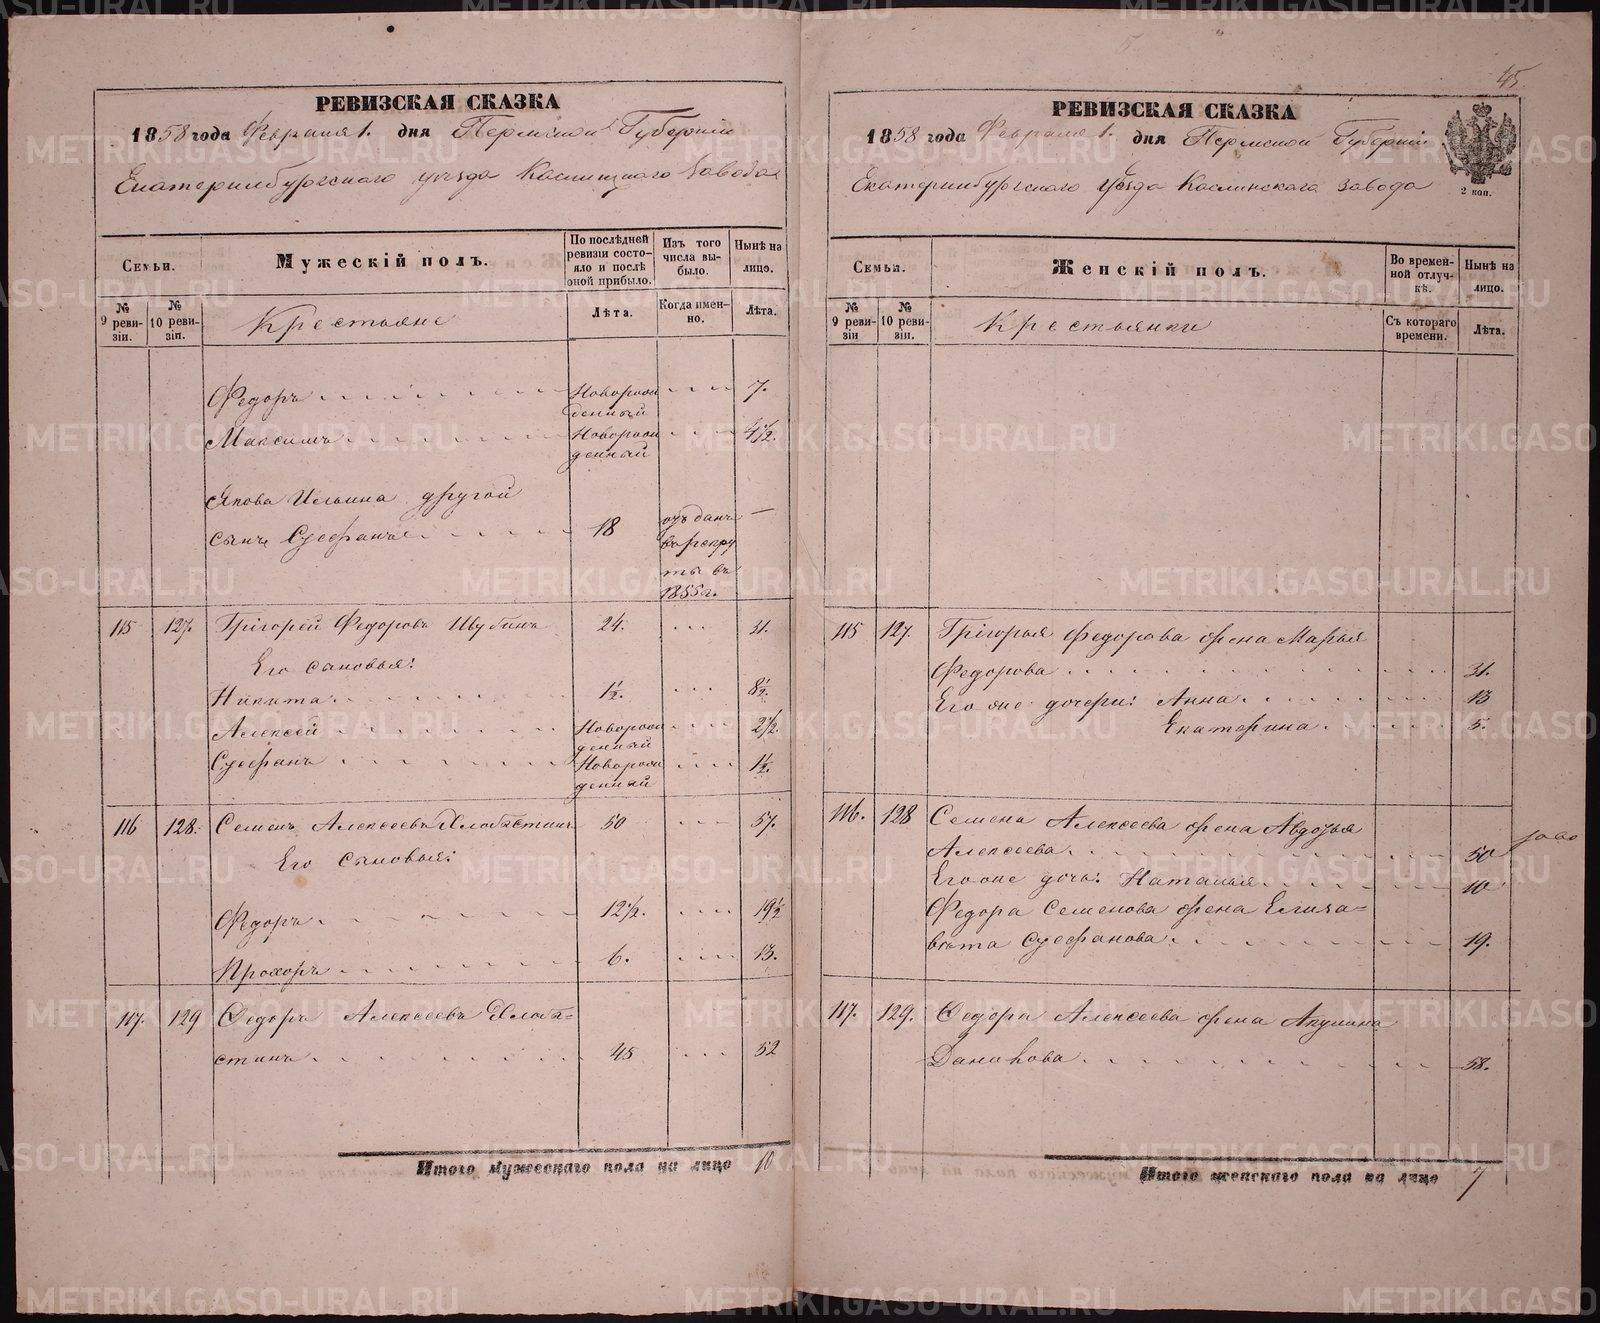 РЕВИЗСКАЯ СКАЗКА
1858 года Февраля 1. дня Пермской Губерніи
Екатеринбургскаго уѣзда Каслинскаго Завода
Семьи.
Мужескій полъ.
По послѣдней ревизіи состояло и послѣ оной прибыло.
Изъ того числа выбыло.
Нынѣ на лицо.
№ 9 ревизіи.
№ 10 ревизіи.
Крестьяне
Лѣта.
Когда именно.
Лѣта.
Федоръ Новорожденный 7.
Максимъ Новорожденный 4½.
Якова Ильина другой
сынъ Стефанъ 18 отданъ въ рекруты въ 1855 г. —
115 127. Григорей Федоровъ Шубинъ 24. 31.
Его сановья:
Никита 1½. 8½.
Алексей Новорожденный 2½.
Стефанъ Новорожденный 1½.
116 128. Семенъ Алексеевъ 50 57.
Его сыновья:
Федоръ 12½. 19½
Прохоръ 6. 13.
117. 129 Федоръ Алексеевъ
стинъ 45 52
Итого мужескаго пола на лицо 10
45
РЕВИЗСКАЯ СКАЗКА
1858 года Февраля 1. дня Пермской Губерніи
Екатеринбургскаго уѣзда Каслинскаго завода
2 коп.
Семьи.
Женскій полъ.
Во временной отлучкѣ.
Нынѣ на лицо.
№ 9 ревизіи
№ 10 ревизіи.
Крестьянки
Съ котораго времени.
Лѣта.
115 127. Григорья Федорова жена Марья
Федорова 31.
Его же дочери: Анна 13
Екатерина 5.
116. 128 Семена Алексеева жена Авдотья
Алексеева 50
Его же дочь: Наталья 10
Федора Семенова жена Елиза-
вѣта Стефанова 19.
117. 129. Федора Алексеева жена Акулина
Данилова 58.
Итого женскаго пола на лицо 7
METRIKI.GASO-URAL.RU